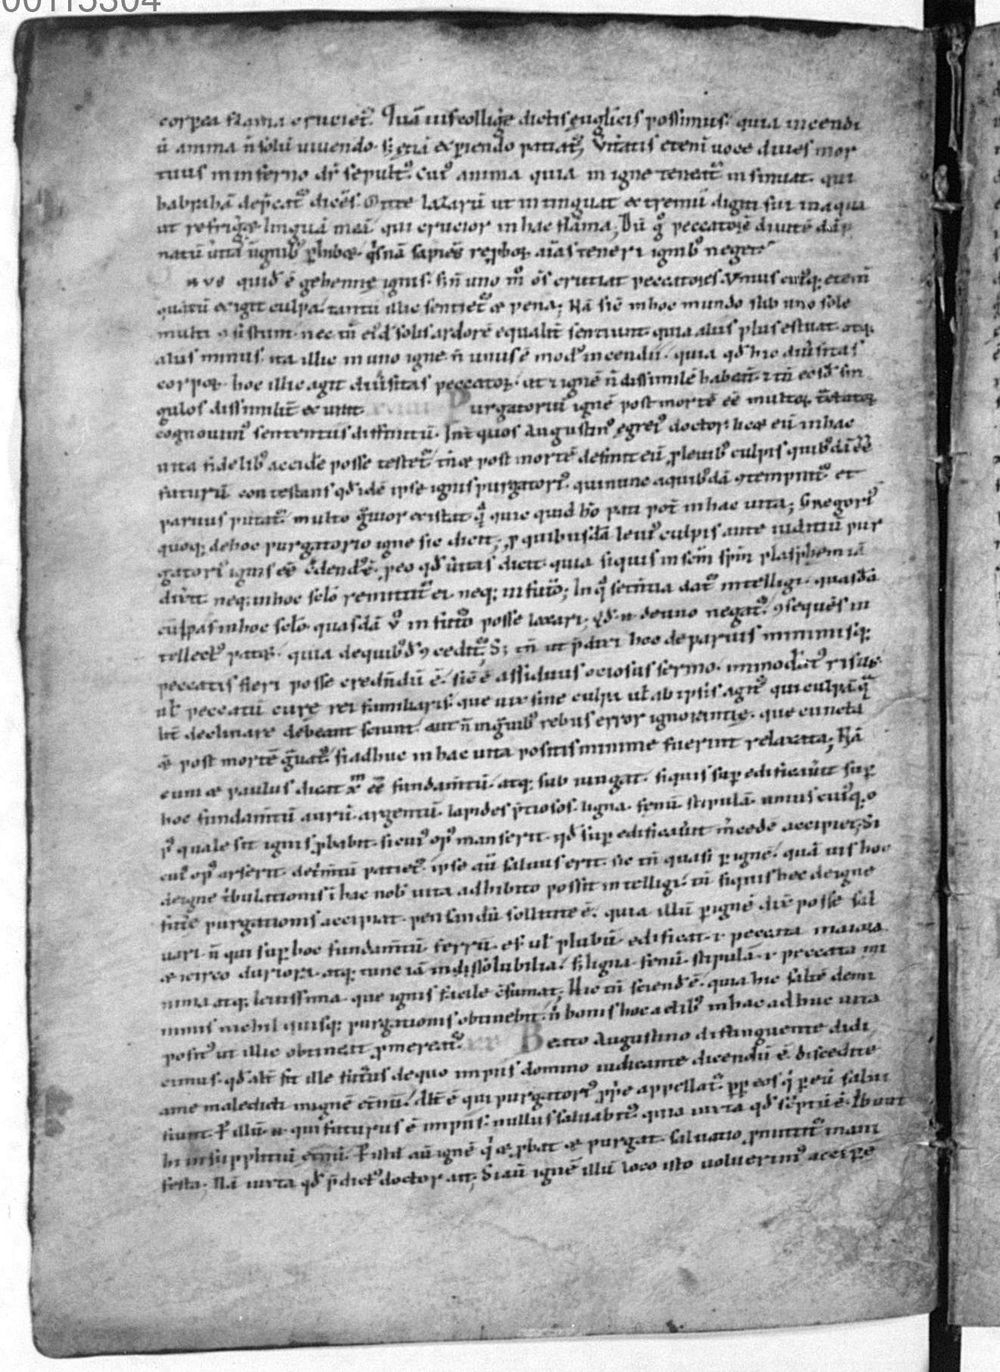 00115304
corporea flāma cruciet᷑. Quā ui colligẹ dictis euglicis possimus. quia incendi
ū anima n̄ solū uiuendo. sꝫ etiā expiendo patiat᷑. Ueritatis eteni uoce diues mor
tuus in inferno dr̄ sepult᷒. Cui᷒ anima quia in igne teneat᷑ insinuat. qui
habrahā depcat᷑ dicēs. Mitte lazarū ut intinguat extremū digiti sui in aqua
ut refrigeret linguā meā. qui crucior in hac flāma;
natū
quid ē gehenne ignis. uno m̄ oēs cruciat peccatores. Unius cuiusqꝫ eteni
quātū exigit culpa. tantū illic sentiet᷑ pena; Nā sic in hoc mundo sub uno sole
multi ɔsistunt. nec tn̄ ei᷒dē solis ardorē equalit̄ sentiunt. quia alius plus estuat. atqꝫ
alius minus. ita illic in uno igne n̄ unus ē mod᷒ incendii. quia qd̄ hic diūsitas
corpoꝝ. hoc illic agit diūsitas peccatoꝝ. ut ⁊ ignē n̄ dissimilē habeant. ⁊ tn̄ eosdē sin
gulos dissimilit̄ exurat Purgatoriū ignē post mortē eē multoꝝ
cognouim᷒ sententiis diffinitū. Int̄ quos Augustin᷒ egreg᷒ doctor. licet eū in hac
uita fidelib᷒ accidẹ posse testet᷑. tn̄ & post mortē definit eū ꝓ leuib᷒ culpis quib᷒dā eē
futurū contestans qd̄ idē ipse ignis purgatori᷒. qui nunc a quib᷒dā ɔtempnit᷑. et
paruus putat᷑. multo ḡuior existat. quic quid hō pati pot̄ in hac uita; Gregori᷒
quoqꝫ de hoc purgatorio igne sic dicit; ꝓ quibusdā leuib᷒ culpis ante iudiciū pur
gatori᷒ ignis eē c̄dend᷒ ē. ꝓ eo qd̄ ūitas dicit. quia siquis in sc̄m spm̄ blasphemiā
dix̄it. neqꝫ in hoc sc̄lo remittit᷑ ei. neqꝫ in futuro; In qua sentnt̄ia dat᷑ intelligi. quasdā
culpas in hoc sc̄lo. quasdā ū in futuro posse laxari. Qd̄ n̄ de uno negat᷑. ɔsequēs in
tellect᷒ patet. quia de quib᷒dā ɔcedit᷑; Sꝫ tn̄ ut p̄dixi hoc de paruis minimisqꝫ
peccatis fieri posse credn̄dū ē. sic ē assiduus ociosus sermo. immodat᷒ risus.
ul̄ peccatū cure rei familiaris. que uix sine culpa ul̄ ab ipsis agit᷑ qui culpā qua
lit̄ declinare debeant sciunt. aut n̄ in ḡuib᷒ rebus error ignorantie. que cuncta
& post mortē ḡuat. si adhuc in hac uita positis minime fuerint relaxata; Nā
cum & paulus dicat xp̄m eē fundam̄tū. atqꝫ subiungat. siquis sup edificauit sup
hoc fundam̄tū aurū. argentū. lapides p̄tiosos. ligna. fenū. stipulā. unius cuiusqꝫ o
p᷒ quale sit ignis ꝓbabit. si cui᷒ op᷒ manserit. qd̄ sup edificauit m̄cedē accipiet; Si
cui᷒ op᷒ arserit. detm̄tū patiet᷑. ipse aū saluus erit. sic tn̄ quasi ꝑ ignē. quā uis hoc
de igne tribulationis ī hac nob᷒ uita adhibito possit intelligi. tn̄ siquis hec de igne
future purgationis accipiat. pensandū sollicite ē. quia illū ꝑ ignē dix̄ posse sal
uari. n̄ qui sup hoc fundam̄tū. ferrū. es. ul̄ plūbū. edificat. ⁊ peccata maiora
& iccirco duriora. atqꝫ tunc iā indissolubilia. sꝫ ligna. fenū. stipulā. ⁊ peccata mi
nima atqꝫ leuissima. que ignis facile c̄sumat; Hic tn̄ sciend᷒ ē. quia hic saltē de mi
nimis nichil quisqꝫ purgationis obtinebit. n̄ bonis hoc actib᷒ in hac adhuc uita
posit᷒ ut illic obtineat ꝓmereat᷑. Beato Augustino distinguente didi
cimus. qd̄ alt̄ sit ille futurus de quo impiis domino iudicante dicendū ē. discedite
a me maledicti in ignē et̄nū. alt̄ ē qui purgatori᷒ ꝓprie appellat᷑. ꝓpt̄ eos qui ꝑ eū salui
fiunt. Per illū n̄ qui futurus ē impiis. nullus saluabit᷑. quia iuxta qd̄ sc̄ptū ē. Ibunt
hi in suppliciū et̄nū. Per istū aū ignē qui & ꝓbat & purgat. saluatio ꝓmittit᷑ mani
festa; Nā iuxta qd̄ p̄dict᷒ doctor ait; Si aū ignē illū loco isto uoluerim᷒ accipe